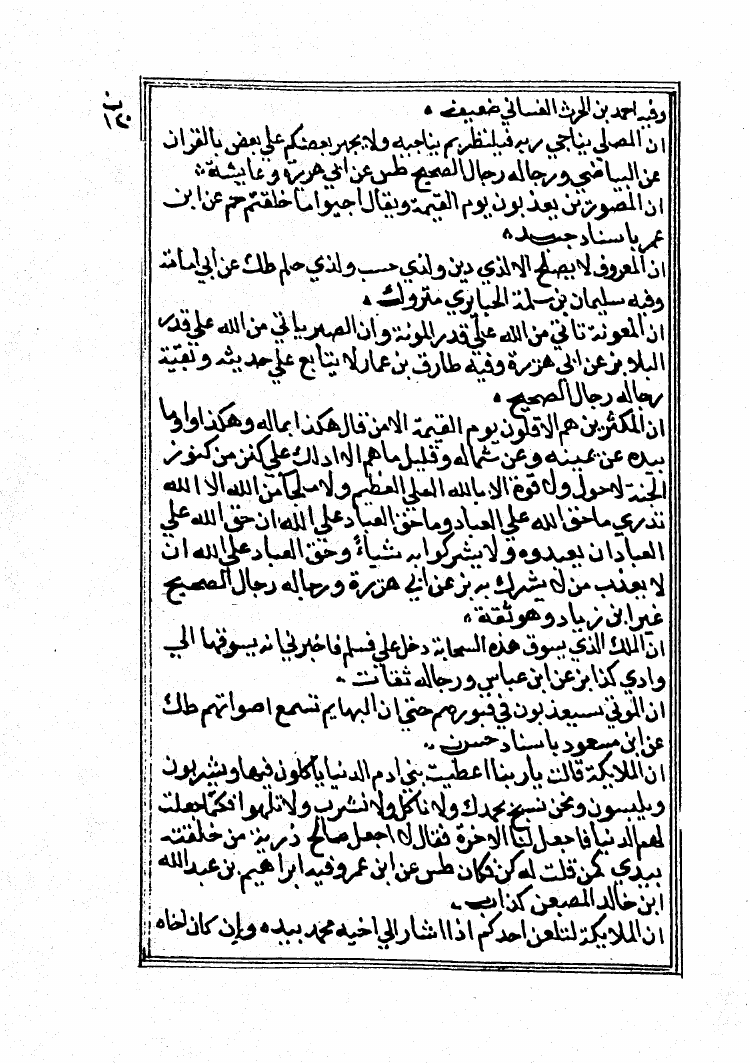 وفيه احمد بن الحرث الغساني ضعيف
ان المصلي يناجي ربه فلينظر بم يناجيه ولا يجهر بعضكم علي بعض بالقران
عن البياضي ورجاله رجال الصحيح طس عن ابي هريرة وعايشة
ان المصورين يعذبون يوم القيمة ويقال احيوا ما خلقتم حم عن ابن
عمر باسناد جيد
ان المعروف لا يصلح الا لذي دين ولذي حسب ولذي حلم طك عن ابي امامة
وفيه سليمان بن سلمة الخبايري متروك
ان المعونة تاتي من الله علي قدر المونة وان الصبر ياتي من الله علي قدر
البلا بز عن ابي هريرة وفيه طارق بن عمار لا يتابع علي حديثه وبقية
رجاله رجال الصحيح
ان المكثرين هم الاقلون يوم القيمة الا من قال هكذا بماله وهكذا واوما
بيده عن يمينه وعن شماله وقليل ما هم الا ادلك علي كنز من كنوز
الجنة لا حول ولا قوة الا بالله العلي العظيم ولا ملجأ من الله الا الله
تدري ما حق الله علي العباد وما حق العباد علي الله ان حق الله علي
العباد ان يعبدوه ولا يشركوا به شياء وحق العباد علي الله ان
لا يعذب من لا يشرك به بز عن ابي هريرة ورجاله رجال الصحيح
غير ابن زياد وهو ثقة
ان الملك الذي يسوق هذه السحابة دخل علي فسلم فاخبرني انه يسوقها الي
وادي كذا بز عن ابن عباس ورجاله ثقات
ان الموتي سيعذبون في قبورهم حتي ان البهايم تسمع اصواتهم طك
عن ابن مسعود باسناد حسن
ان الملايكة قالت يا ربنا اعطيت بني ادم الدنيا ياكلون فيها ويشربون
ويلبسون ونحن نسبح بحمدك ولا ناكل ولا نشرب ولا نلهوا فكما جعلت
لهم الدنيا فاجعل لنا الاخرة فقال لا اجعل صالح ذرية من خلقته
بيدي كمن قلت له كن فكان طس عن ابن عمر وفيه ابراهيم بن عبد الله
ابن خالد المصيصي كذاب
ان الملايكة لتلعن احدكم اذا اشار الي اخيه بيده وان كان اخاه